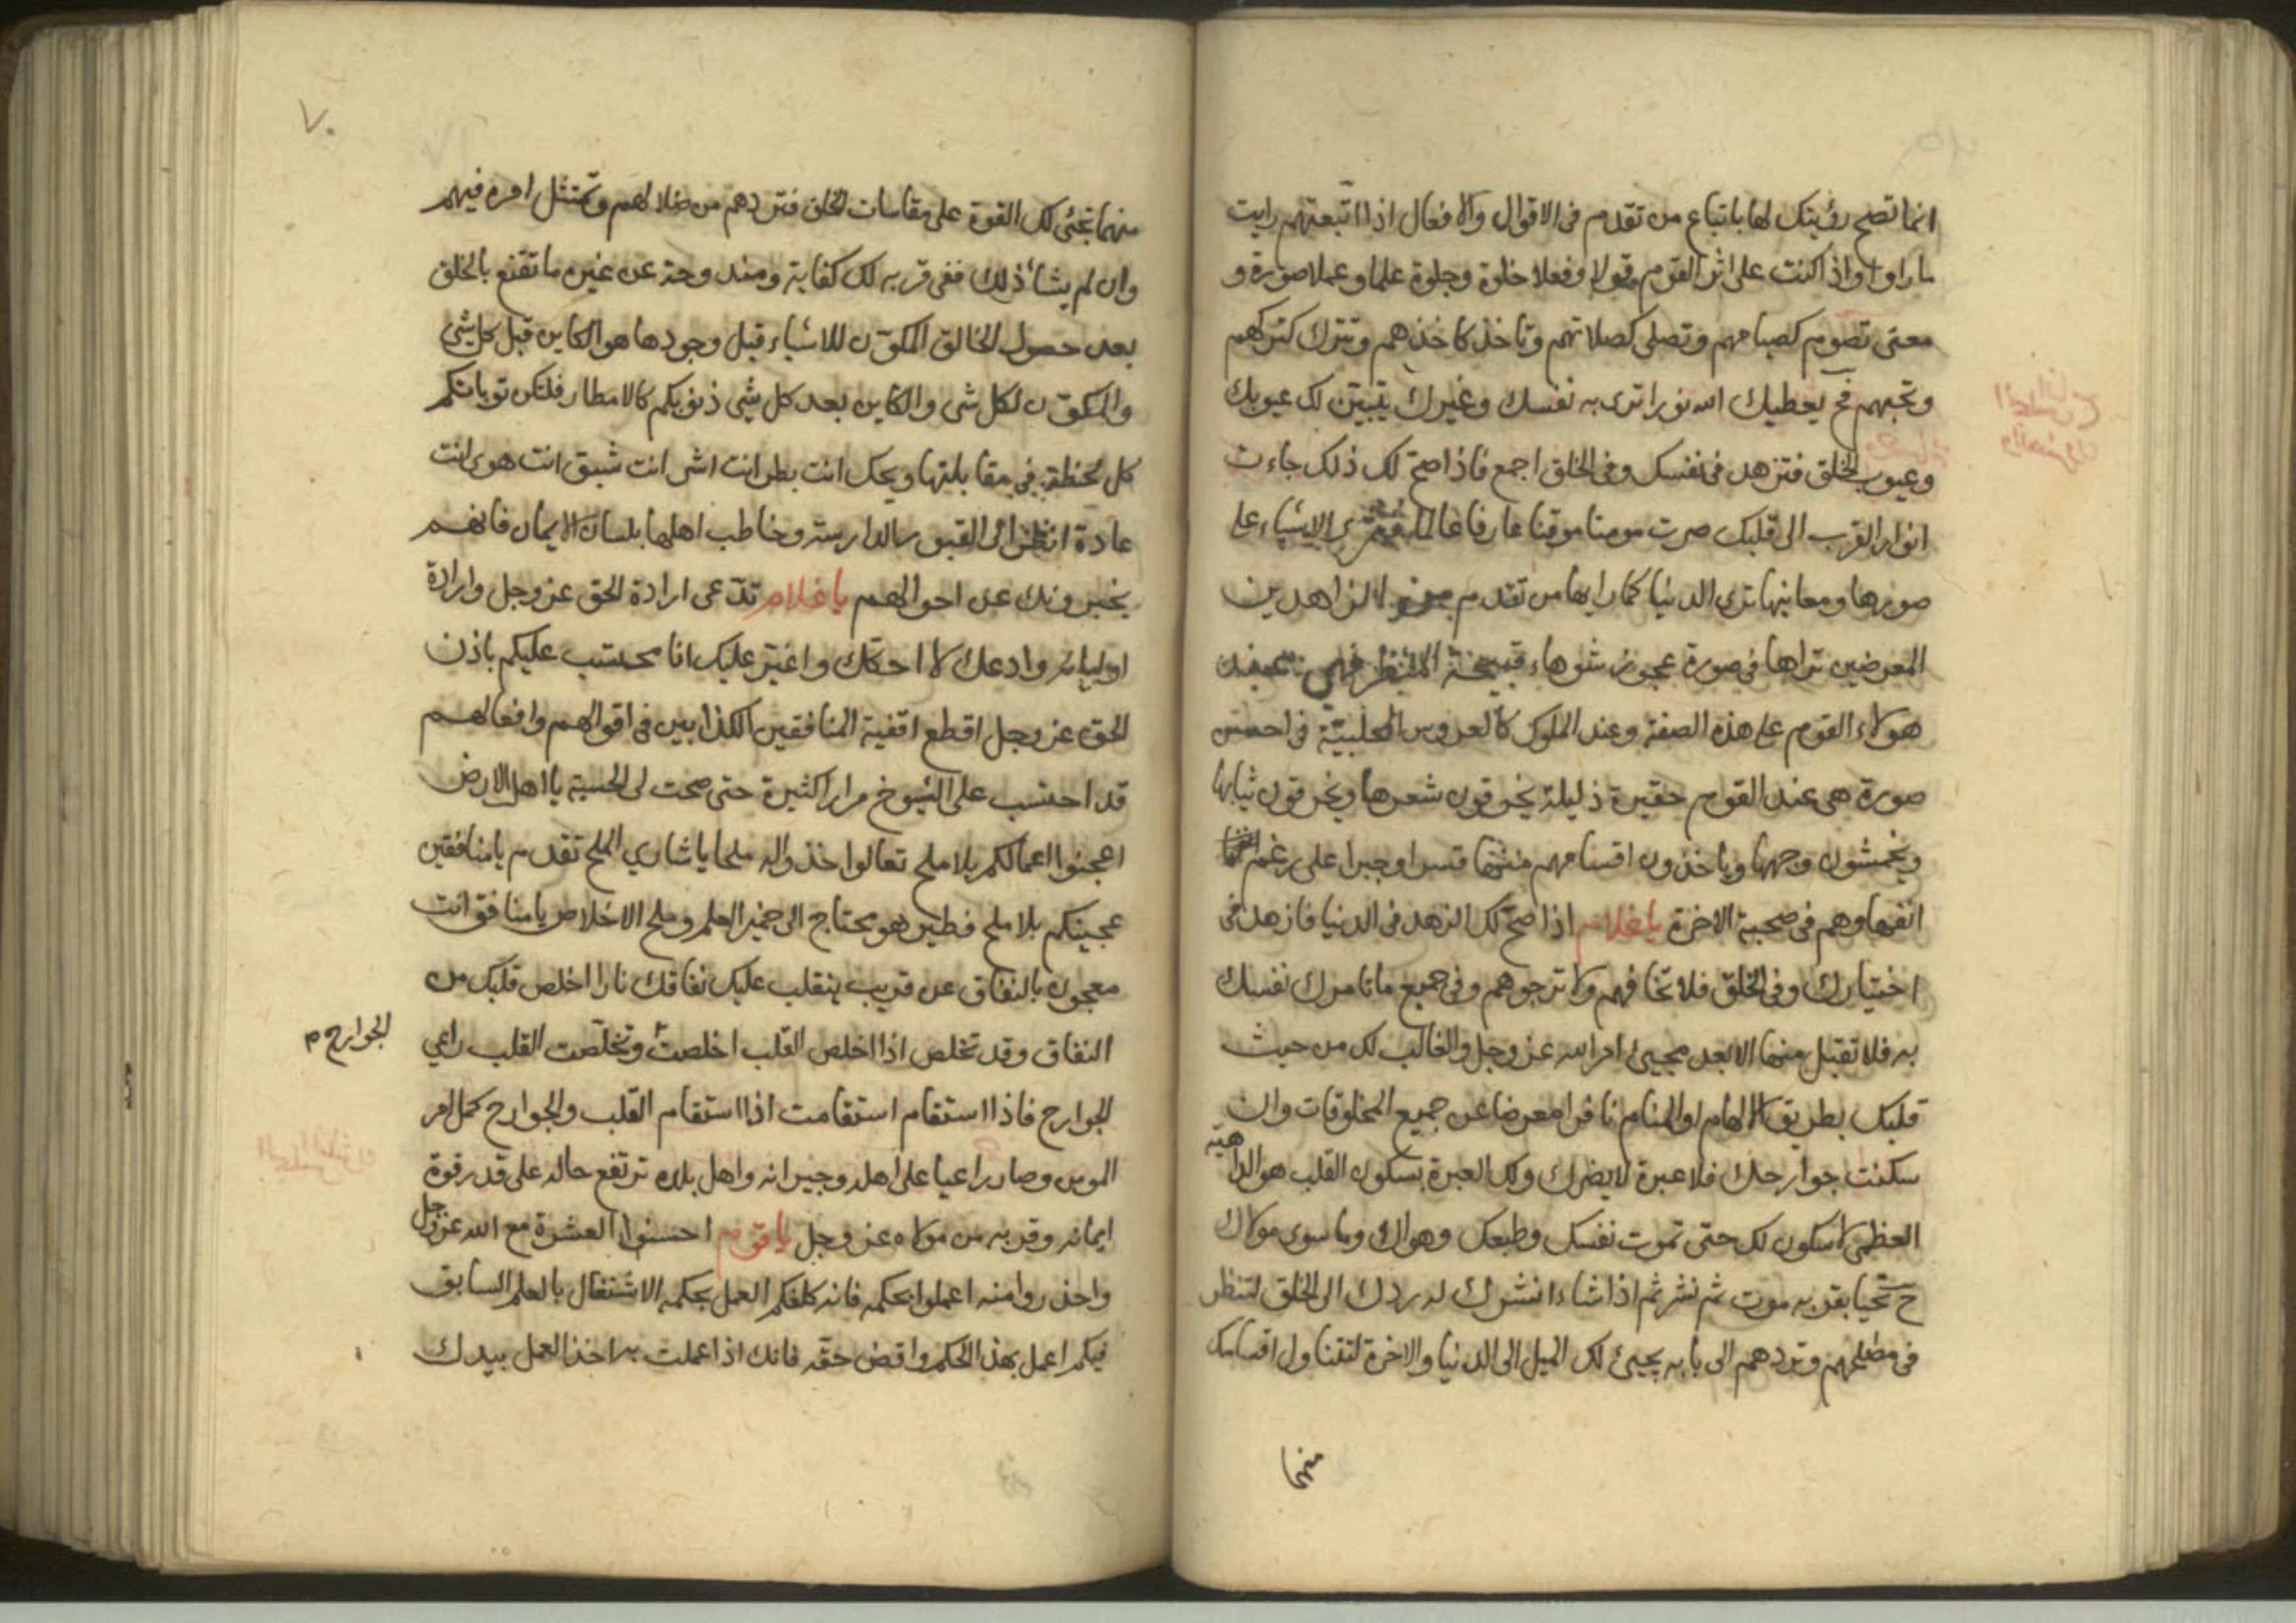 انما تصح رؤيتك لها باتباع من تقدم في الاقوال والافعال اذا اتبعتهم رايت
ما راوا واذا كنت على اثر القوم قولا وفعلا خلوة وجلوة علما وعملا صورة و
معنى تصوم كصيامهم وتصلى كصلاتهم وتاخذ كاخذهم وتترك كتركهم
وتحبهم فح يعطيك الله نورا ترى به نفسك وغيرك يتبين لك عيوبك
وعيوب الخلق فتزهد في نفسك وفي الخلق اجمع فاذا صح لك ذلك جاءت
انوار القرب الى قلبك صرت مومنا موقنا عارفا عالما فترى الاشياء على
صورها ومعانيها ترى الدنيا كما راها من تقدم من الزاهدين
المعرضين تراها في صورة عجوز شوهاء قبيحة المنظر فهى عند
هولاء القوم على هذه الصفة وعند الملوك كالعروس المجلية في احسن
صورة هى عند القوم حقيرة ذليلة يحرقون شعرها ويخرقون ثيابها
ويخمشون وجهها وياخذون اقسامهم منها قسرا وجبرا على رغم
انفها وهم في صحبة الاخرة يا غلام اذا صح لك الزهد في الدنيا فازهد في
اختيارك وفي الخلق فلا تخافهم ولا ترجوهم وفي جميع ما تامرك نفسك
به فلا تقبل منها الا بعد مجيئ امر الله عز وجل والغالب لك من حيث
قلبك بطريق الالهام او المنام نافرا معرضا عن جميع المخلوقات وان
سكنت جوارحك فلا عبرة لا يضرك ولك العبرة بسكون القلب هو الداهية
العظمى لا سكون لك حتى تموت نفسك وطبعك وهواك وما سوى مولاك
ح تحيا بقربه موت ثم نشر ثم اذا شاء انشرك له ردك الى الخلق لتنظر
في مصالحهم وتردهم الى بابه يجيئ لك الميل الى الدنيا والاخرة لتتناول اقسامك
منها
٧٠
منهما تجئى لك القوة على مقاسات الخلق فتردهم من ضلالهم وتمتثل امره فيهم
وان لم يشأ ذلك ففى قربه لك كفاية ومندوحة عن غيره ما تقنع بالخلق
بعد حصول الخالق المكون للاشياء قبل وجودها هو الكاين قبل كل شئ
والمكون لكل شى والكاين بعد كل شئ ذنوبكم كالامطار فلتكن توباتكم
كل لحظة في مقابلتها ويحك انت بطر انت اشر انت شبق انت هوى انت
عادة انظر الى القبور الدارسة وخاطب اهلها بلسان الايمان فانهم
يخبرونك عن احوالهم يا غلام تدّعى ارادة الحق عز وجل وارادة
اوليائه وادعك لا احكك واغير عليك انا محتسب عليكم باذن
الحق عز وجل اقطع اقفية المنافقين الكذابين في اقوالهم وافعالهم
قد احتسب على الشيوخ مرارا كثيرة حتى صحت لى الحسبة يا اهل الارض
اعجنوا اعمالكم بلا ملح تعالوا خذوا له ملحا يا شارى الملح تقدم يا منافقين
عجينكم بلا ملح فطير هو محتاج الى خمير العلم وملح الاخلاص يا منافق انت
معجون بالنفاق عن قريب ينقلب عليك نفاقك نارا اخلص قلبك من
النفاق وقد تخلص اذا اخلص القلب اخلصت وتخلصت القلب راعى
الجوارح م
الجوارح فاذا استقام استقامت اذا استقام القلب والجوارح كمل امر
المومن وصار راعيا على اهله وجيرانه واهل بلده ترتفع حاله على قدر قوة
ايمانه وقربه من مولاه عز وجل يا قوم احسنوا العشرة مع الله عز وجل
واحذروا منه اعملوا بحكمه فانه كلفكم العمل بحكمه الاشتغال بالعلم السابق
فيكم اعمل بهذا الحكم واقض حقه فانك اذا عملت به اخذ العمل بيدك